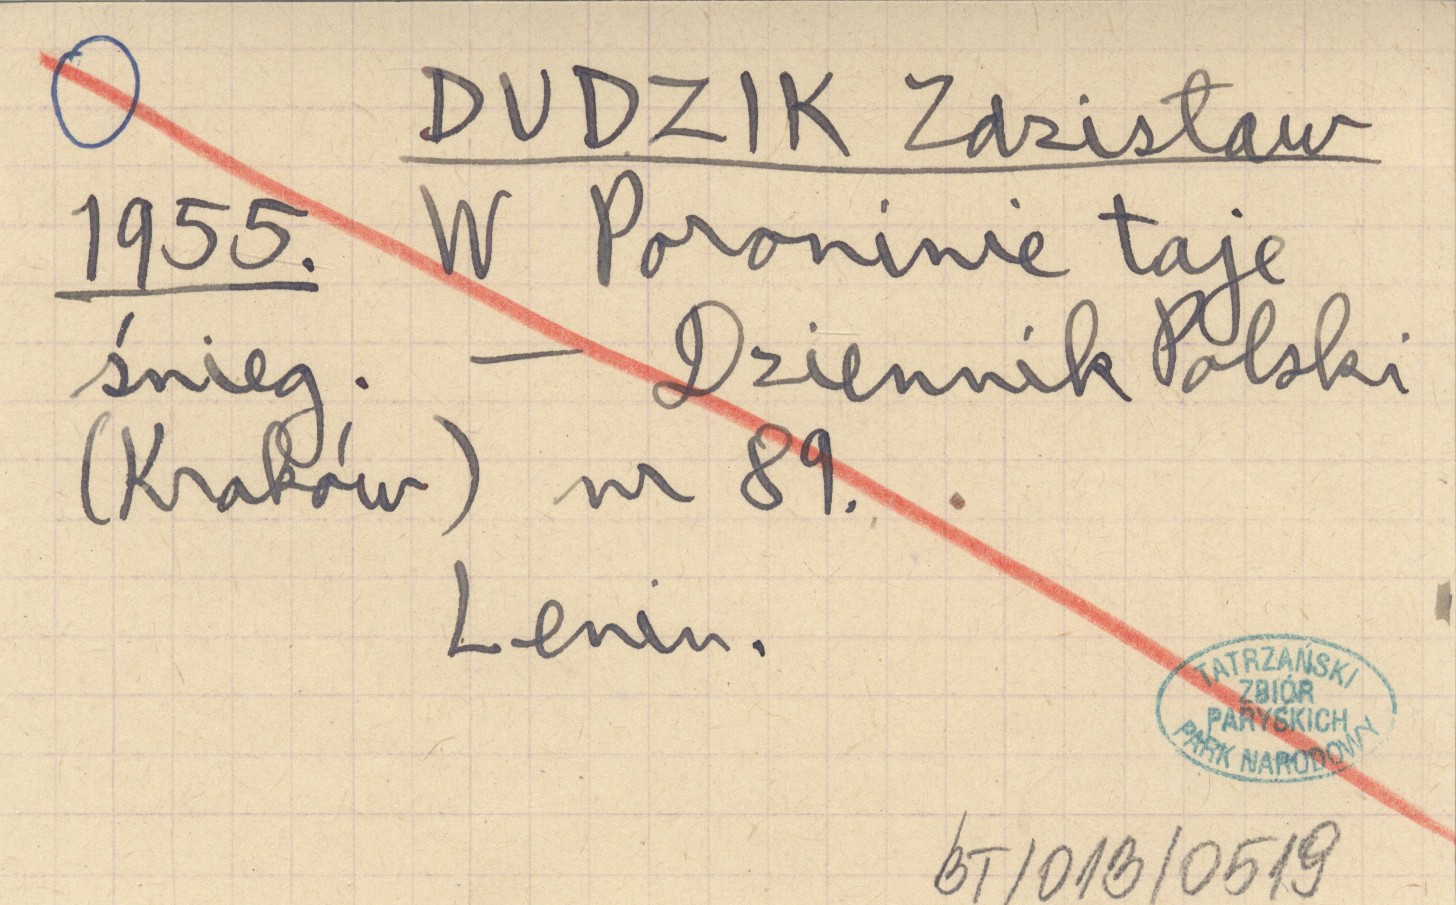 DUDZIK Zdzisław
1955. W Poroninie taje
śnieg. — Dziennik Polski
(Kraków) nr 89.
Lenin.
TATRZAŃSKI
ZBIÓR
PARYSKICH
PARK NARODOWY
BT/013/0519